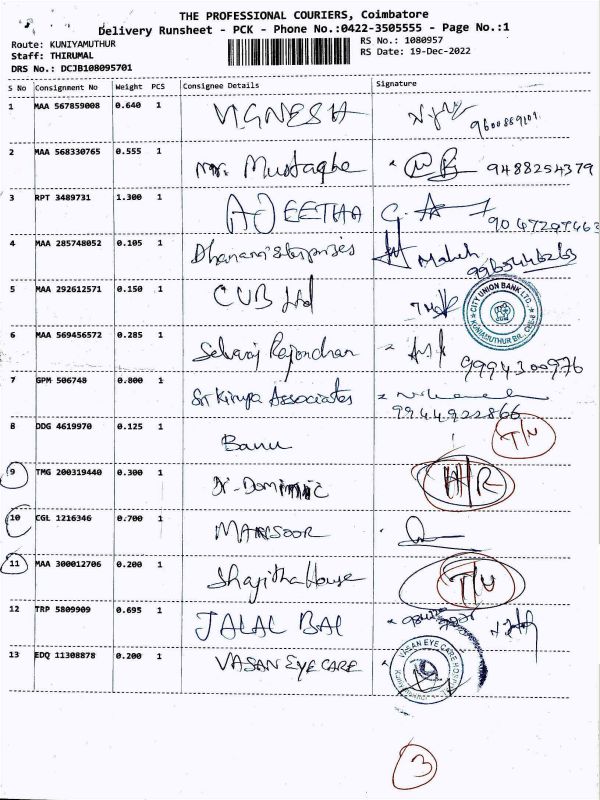 THE PROFESSIONAL COURIERS, Coimbatore
Delivery Runsheet - PCK - Phone No.:0422-3505555 - Page No.:1
Route: KUNIYAMUTHUR
RS No.: 1080957
Staff: THIRUMAL
RS Date: 19-Dec-2022
DRS No.: DCJB108095701
S No Consignment No Weight PCS Consignee Details Signature
1 MAA 567859008 0.640 1 VIGNESH
2 MAA 568330765 0.555 1 Mr. Mustaqhe 9488254379
3 RPT 3489731 1.300 1 AJEETHA
4 MAA 285748052 0.105 1 Mahesh
5 MAA 292612571 0.150 1 CUB Ltd CITY UNION BANK LTD. KUNIYAMUTHUR BR. CBE-8
6 MAA 569456572 0.285 1 Selvaraj Rajendran 9994300976
7 GPM 506748 0.800 1 Sri Kirupa Associates
9944922866
8 DDG 4619970 0.125 1 Banu T/N
9 TMG 200319440 0.300 1 Dr. Dominic H/R
10 CGL 1216346 0.700 1 MANSOOR
11 MAA 300012706 0.200 1 Shajitha House T/N
12 TRP 5809909 0.695 1 JALAL BAI
13 EDQ 11308878 0.200 1 VASAN EYE CARE VASAN EYE CARE
3